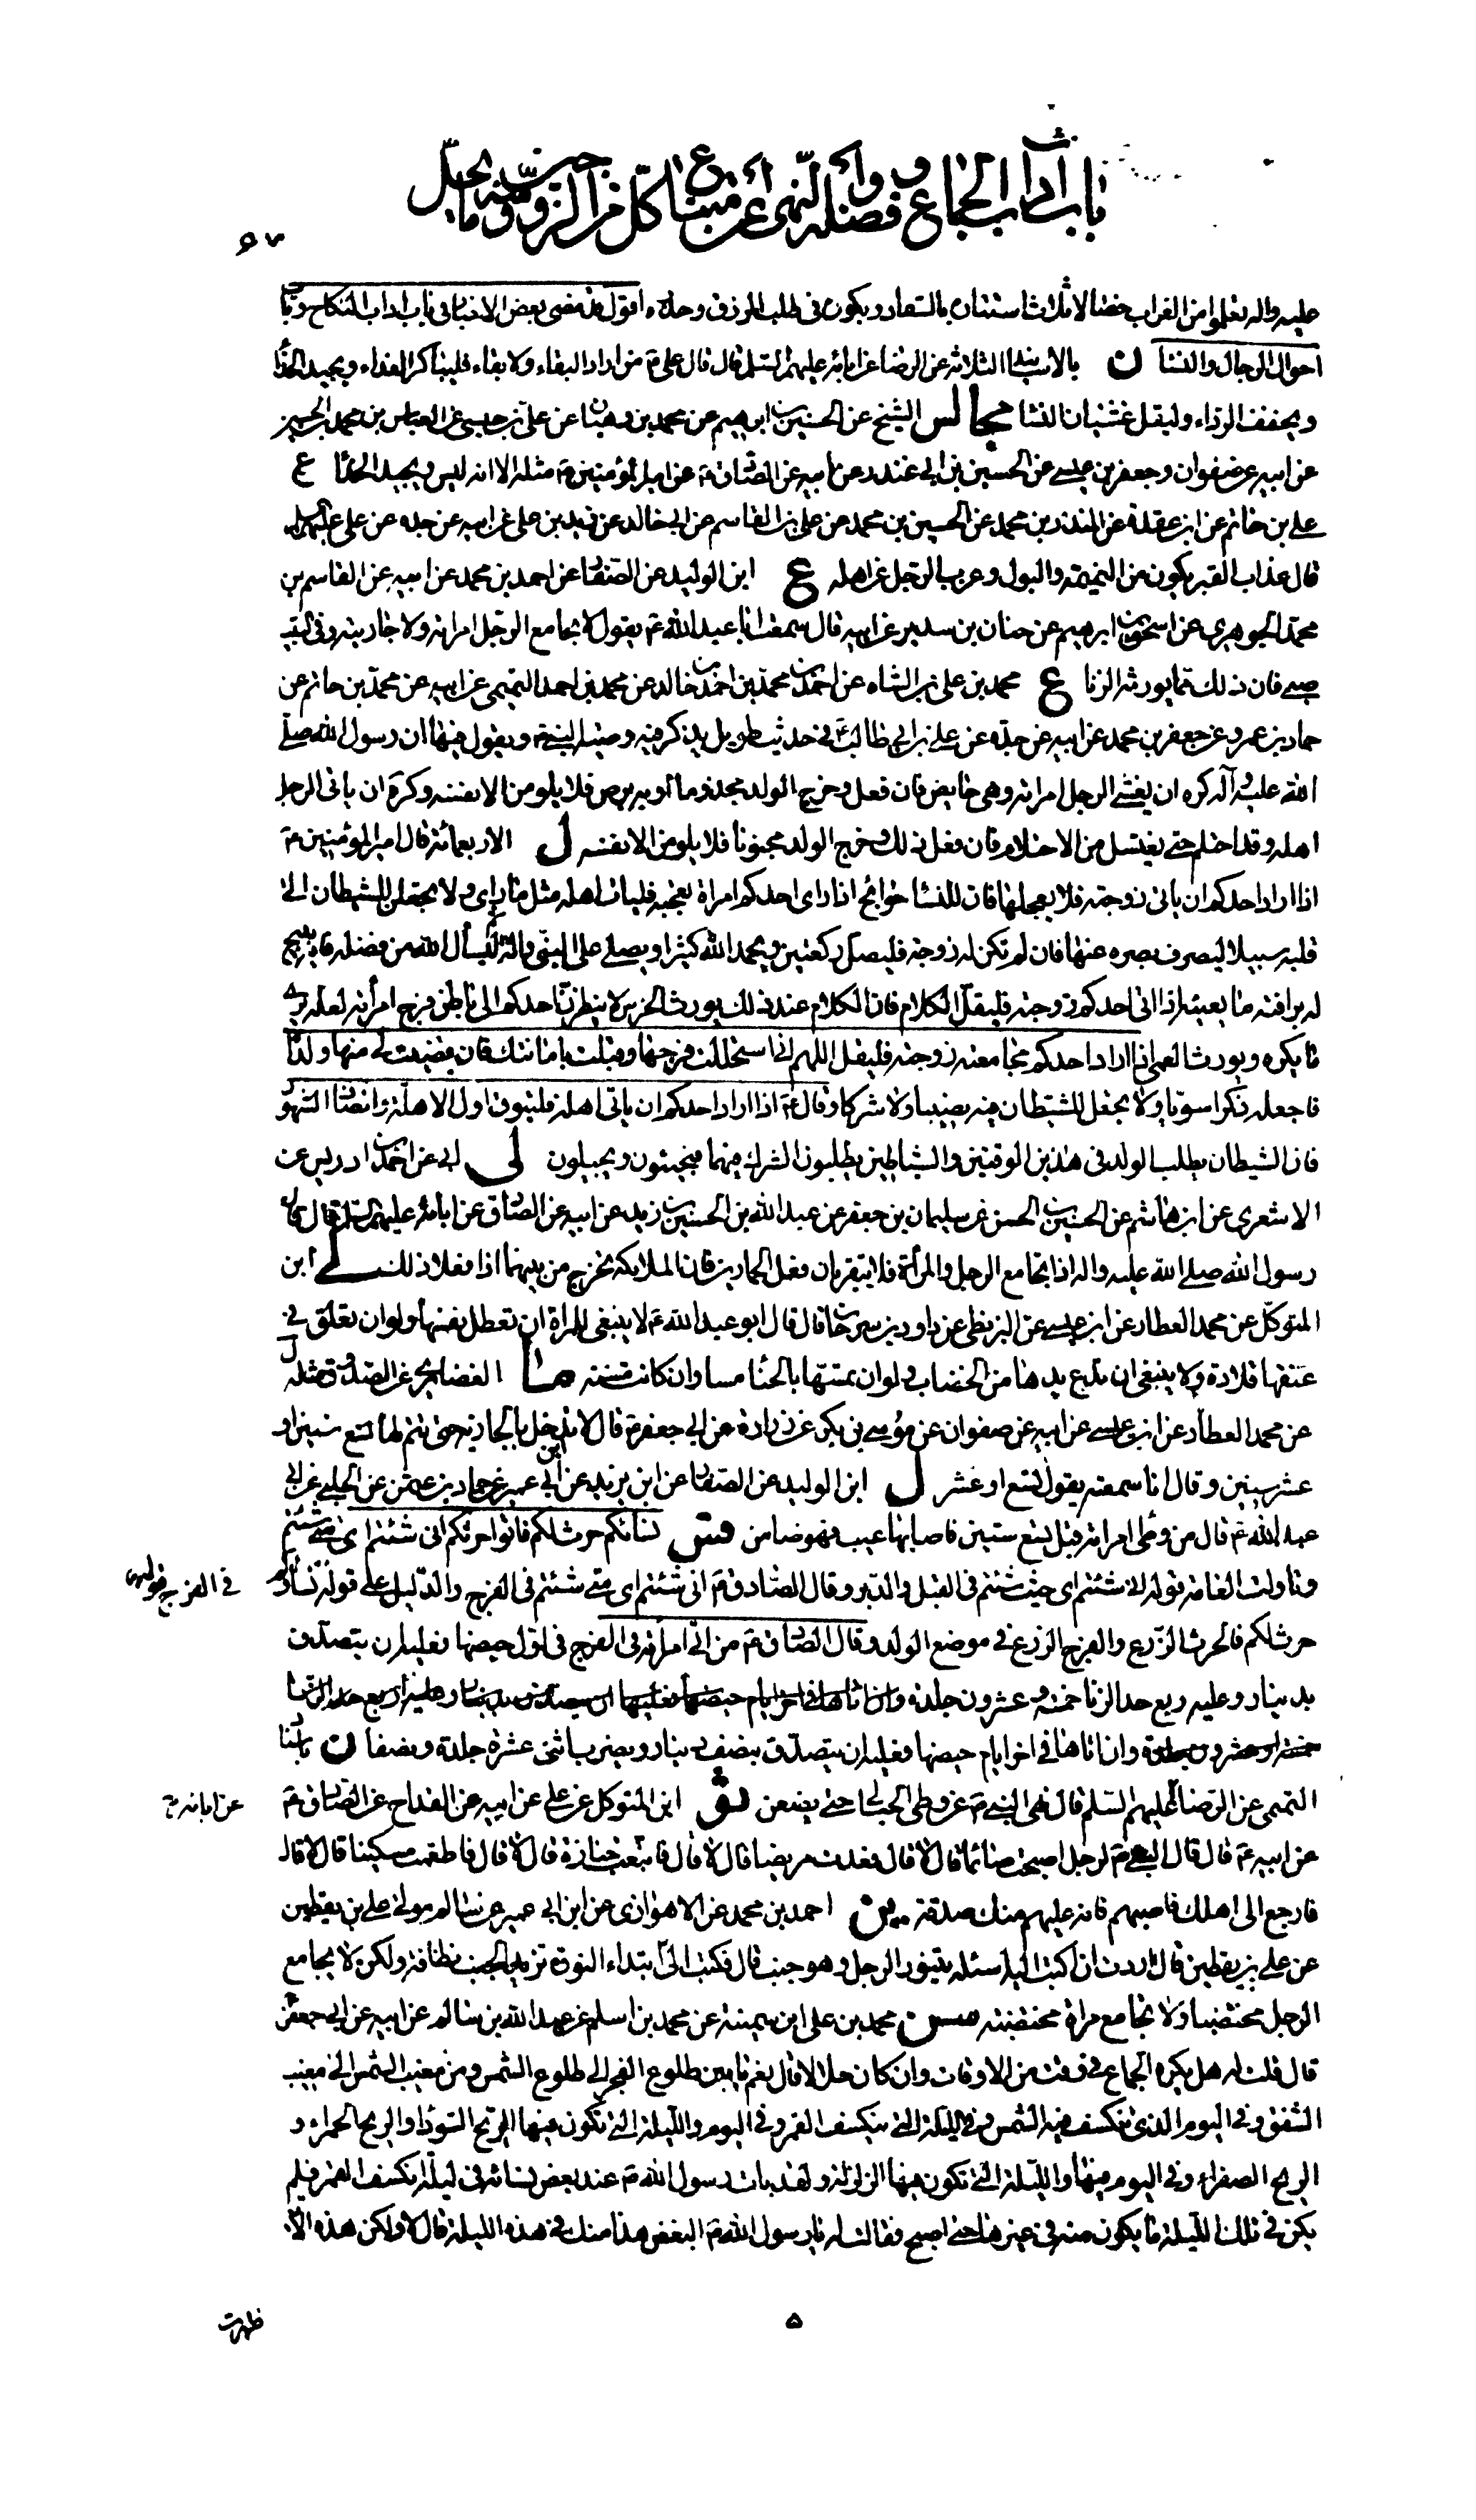 باب آداب الجماع وفضله والنهي عن امتناع كل من الزوجين وما يحل
٩٧
عليه واله تعلموا من الغراب خصالا ثلاثا استتاره بالسفاد وبكوره فى طلب الرزق وحذره اقول قد مضى بعض الاخبار فى باب اداب النكاح وباب
احوال الرجال والنسا ن بالاسانيد الثلاثة عن الرضا عن ابائه عليهم السلم قال قال على ع من اراد البقاء ولا بقاء فليباكر الغداء ويجيد الحذا
ويخفف الرداء وليقل غشيان النسا مجالس الشيخ عن الحسين بن ابرهيم عن محمد بن وهبان عن على بن حبشى عن العباس بن محمد بن الحسين
عن ابيه عن صفوان وجعفر بن عيسى عن الحسين بن ابى غندر عن ابيه عن الصادق ع عن امير المؤمنين ع مثله الا انه ليس ويجيد الحذا ع
على بن حاتم عن ابن عقدة عن المنذر بن محمد عن الحسين بن محمد عن على بن القاسم عن ابى خالد عن زيد بن على عن ابيه عن جده عن على عليهم السلم
قال عذاب القبر يكون من النميمة والبول وعزب الرجل عن اهله ع ابن الوليد عن الصفار عن احمد بن محمد عن ابيه عن القاسم بن
محمد الجوهرى عن اسحق بن ابرهيم عن حنان بن سدير عن ابيه قال سمعت ابا عبد الله ع يقول لا يجامع الرجل امراته ولا جاريته وفى البيت
صبى فان ذلك مما يورث الزنا ع محمد بن على بن الشاه عن احمد بن محمد بن احمد بن خالد عن محمد بن احمد التميمى عن ابيه عن محمد بن حاتم عن
حماد بن عمرو عن جعفر بن محمد عن ابيه عن جده عن على بن ابى طالب ع فى حديث طويل يذكر فيه وصية النبى ص ويقول فيها ان رسول الله صلى
الله عليه وآله كره ان يغشى الرجل امراته وهى حايض فان فعل وخرج الولد مجذوما او به برص فلا يلومن الا نفسه وكره ان ياتى الرجل
اهله وقد احتلم حتى يغتسل من الاحتلام فان فعل ذلك وخرج الولد مجنونا فلا يلومن الا نفسه ل الاربعمائة قال امير المؤمنين ع
اذا اراد احدكم ان ياتى زوجته فلا يعجلها فان للنسا حوائج اذا راى احدكم امراة تعجبه فليات اهله مثل ما راى ولا يجعلن للشيطان الى
قلبه سبيلا ليصرف بصره عنها فان لم تكن له زوجة فليصل ركعتين ويحمد الله كثيرا ويصلى على النبى واله ثم ليسأل الله من فضله فانه يبيح
له برأفته ما يغنيه اذا اتى احدكم زوجته فليقل الكلام فان الكلام عند ذلك يورث الخرس لا ينظرن احدكم الى باطن فرج امرأته لعله يرى
ما يكره ويورث العمى اذا اراد احدكم مجامعة زوجته فليقل اللهم انى استحللت فرجها وقبلت بامانتك فان قضيت لى منها ولدا
فاجعله ذكرا سويا ولا تجعل للشيطان فيه نصيبا ولا شركا وقال ع اذا اراد احدكم ان ياتى اهله فليتوق اول الاهلة وانصاف الشهور
فان الشيطان يطلب الولد فى هذين الوقتين والشياطين يطلبون الشرك فيهما فيجيئون ويحبلون لى ابى عن احمد بن ادريس عن
الاشعرى عن ابن هاشم عن الحسين بن الحسن عن سليمان بن جعفر عن عبد الله بن الحسين بن زيد عن ابيه عن الصادق عن ابائه عليهم السلم قال قال
رسول الله صلى الله عليه واله اذا تجامع الرجل والمرأة فلا يتعريان فعل الحمارين فان الملائكة تخرج من بينهما اذا فعلا ذلك لى ابن
المتوكل عن محمد العطار عن ابن عيسى عن البزنطى عن داود بن سرحان قال قال ابو عبد الله ع لا ينبغى للمراة ان تعطل نفسها ولو ان تعلق فى
عنقها قلادة ولا ينبغى ان تدع يدها من الخضاب ولو ان تمسها بالحنا مسا وان كانت مسنة ما الغضايرى عن الصدوق مثله ل
عن محمد العطار عن ابن عيسى عن ابيه عن صفوان عن موسى بن بكر عن زرارة عن ابى جعفر ع قال لا يدخل بالجارية حتى يتم لها تسع سنين او
عشر سنين وقال انا سمعته يقول تسع او عشر ل ابن الوليد عن الصفار عن ابن يزيد عن ابن ابى عمير عن حماد بن عيسى عن الحلبى عن ابى
عبد الله ع قال من وطى امراته قبل تسع سنين فاصابها عيب فهو ضامن فس نسائكم حرث لكم فاتوا حرثكم انى شئتم اى متى شئتم
وتاولت العامة قوله انى شئتم اى حيث شئتم فى القبل والدبر وقال الصادق ع انى شئتم اى متى شئتم فى الفرج والدليل على قوله نساؤكم
فى الفرج قوله
حرث لكم فالحرث الزرع والفرج الزرع فى موضع الولد وقال الصادق ع من اتى امرأته فى الفرج فى اول حيضها فعليه ان يتصدق
بدينار وعليه ربع حد الزنا خمسة وعشرون جلدة وان اتاها فى اخر ايام حيضها فعليه ان يتصدق بدينار وعليه ربع حد الزنا
خمسة وعشرون جلدة وان اتاها فى اخر ايام حيضها فعليه ان يتصدق بنصف دينار ويضرب اثنى عشرة جلدة ونصفا ن باسناد
التميمى عن الرضا عليهم السلم قال نهى النبى ص عن وطى الحبالى حتى يضعن ثو ابن المتوكل عن على عن ابيه عن القداح عن الصادق ع
عن ابائه
عن ابيه ع قال قال النبى ص لرجل اصبحت صائما قال لا قال فعدت مريضا قال لا قال فاتبعت جنازة قال لا قال فاطعمت مسكينا قال لا قال
فارجع الى اهلك فاصبهم فانه عليهم منك صدقة ين احمد بن محمد عن الاهوازى عن ابن ابى عمير عن سالم مولى على بن يقطين
عن على بن يقطين قال اردت ان اكتب اليه اسئله يتنور الرجل وهو جنب قال فكتب الى ابتداء النورة تزيد الجنب نظافة ولكن لا يجامع
الرجل مختضبا ولا تجامع مراة مختضبة سن محمد بن على عن محمد بن اسلم عن عبد الله بن سالم عن ابيه عن ابى جعفر
قال قلت له هل يكره الجماع فى وقت من الاوقات وان كان حلالا قال نعم ما بين طلوع الفجر الى طلوع الشمس ومن مغيب الشمس الى مغيب
الشفق وفى اليوم الذى تنكسف فيه الشمس وفى الليلة التى ينكسف القمر وفى اليوم والليلة التى تكون فيها الريح السودا والريح الحمراء و
الريح الصفراء وفى اليوم والليلة التى تكون فيها الزلزلة ولقد بات رسول الله ص عند بعض نسائه فى ليلة انكسف القمر فلم
يكن فى تلك الليلة ما يكون منه فى غيرها حتى اصبح فقالت له يا رسول الله ص البغض هذا منك فى هذه الليلة قال لا ولكن هذه الاية
٥
ظهرت